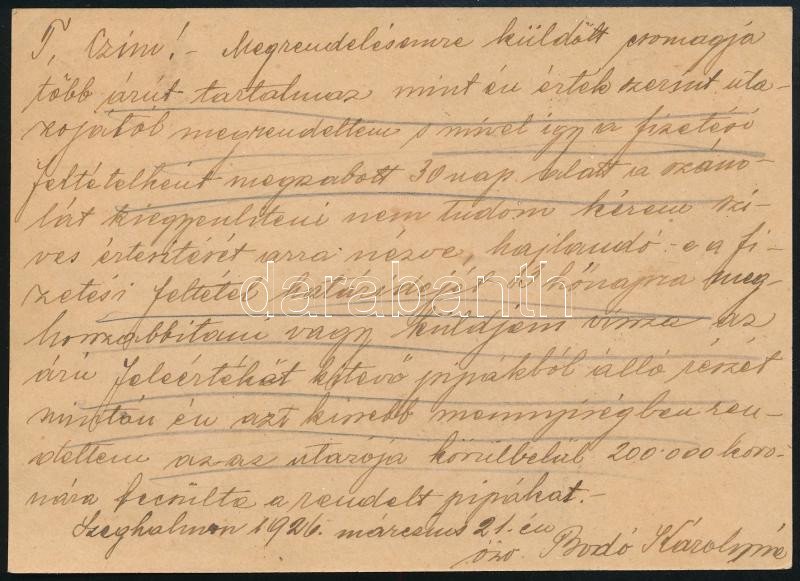 T. Czim! - Megrendelésemre küldött csomagja
több árút tartalmaz mint én érték szerint uta-
zójától megrendeltem s mivel így a fizetési
feltételként megszabott 30 nap alatt a szám-
lát kiegyenlíteni nem tudom kérem szi-
ves értesítését arra nézve, hajlandó-e a fi-
zetési feltétel határidejét 3 hónapra meg-
hosszabbitani vagy küldjem vissza az
árú feleértékét kitevő pipákból álló részét
miután én azt kisebb mennyiségben ren-
deltem azaz utazója körülbelül 200.000 koro-
nára becsülte a rendelt pipákat.-
Szeghalmon 1926. március 21.-én
özv. Bodó Károlyné
darabanth